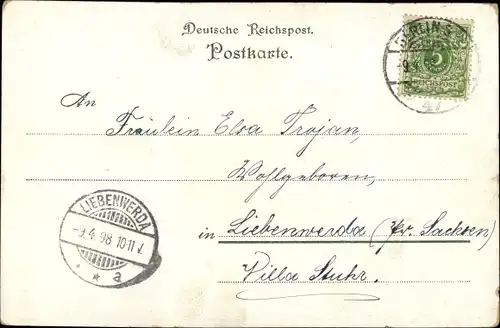 Deutsche Reichspost.
Postkarte.
BERLIN S.
-9.4.
47
5
REICHSPOST
An
Fräulein Elsa Trojan,
Wohlgeboren,
in Liebenwerda (Pr. Sachsen)
Villa Stuhr.
LIEBENWERDA
-9.4.98 10-11 V.
* * a